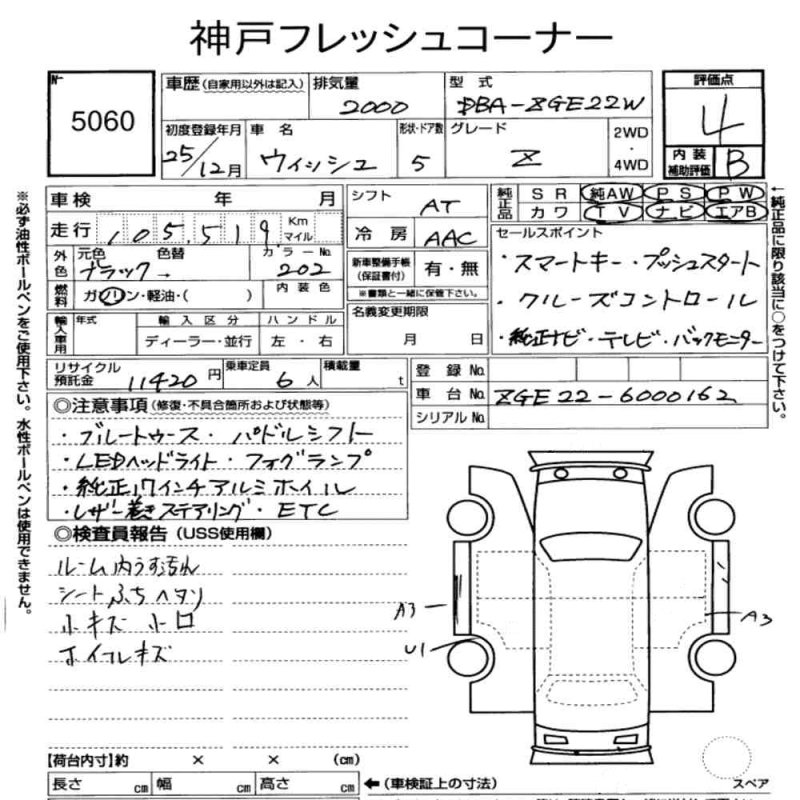 神戸フレッシュコーナー
No 5060
車歴(自家用以外は記入)
排気量 2000
型式 DBA-ZGE22W
評価点 4
初度登録年月 25/12月
車名 ウィッシュ
形状・ドア数 5
グレード Z
2WD・4WD
内装補助評価 B
車検 年 月
走行 105,519 Km マイル
シフト AT
冷房 AAC
純正品 SR 純AW PS PW
カワ TV ナビ エアB
外色 元色 ブラック 色替 → カラーNo. 202
燃料 ガソリン・軽油・( ) 内装色
新車整備手帳(保証書付) 有・無
※書類と一緒に保管下さい。
輸入車用 年式 輸入区分 ディーラー・並行 ハンドル 左・右
名義変更期限 月 日
セールスポイント
・スマートキー・プッシュスタート
・クルーズコントロール
・純正ナビ・テレビ・バックモニター
リサイクル預託金 11420円
乗車定員 6人
積載量 t
登録No.
車台No. ZGE22-6000162
シリアルNo.
◎注意事項(修復・不具合箇所および状態等)
・ブルートゥース・パドルシフト
・LEDヘッドライト・フォグランプ
・純正17インチアルミホイル
・レザー巻きステアリング・ETC
◎検査員報告(USS使用欄)
ルーム内うす汚れ
シートふちヘタリ
小キズ 小凹
ホイルキズ
A3
U1
A3
【荷台内寸】約 × × (cm)
長さ cm 幅 cm 高さ cm
←(車検証上の寸法)
スペア
※必ず油性ボールペンをご使用下さい。水性ボールペンは使用できません。
←純正品に限り該当に○をつけて下さい。